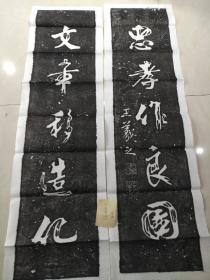 忠孝作良图
王羲之
文章移造化